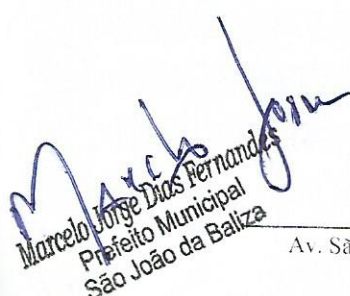 Marcelo Jorge Dias Fernandes
Prefeito Municipal
São João da Baliza
Av. Sã